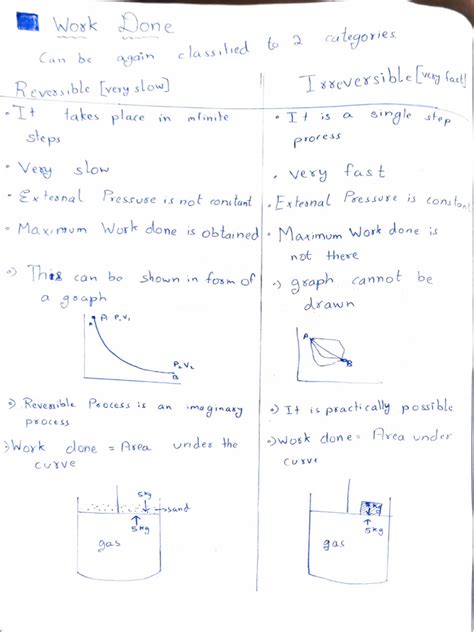 Work Done
Can be again classified to 2 categories
Reversible [very slow]
• It takes place in infinite
steps
• Very slow
• External Pressure is not constant
• Maximum Work done is obtained
•) This can be shown in form of
a graph
A P₁V₁
P₂V₂
B
•) Reversible Process is an imaginary
process
•) Work done = Area under the
curve
5kg
sand
5kg
gas
Irreversible [very fast]
• It is a single step
process
• very fast
• External Pressure is constant
• Maximum Work done is
not there
•) graph cannot be
drawn
A
B
•) It is practically possible
•) Work done = Area under
curve
5kg
5kg
gas